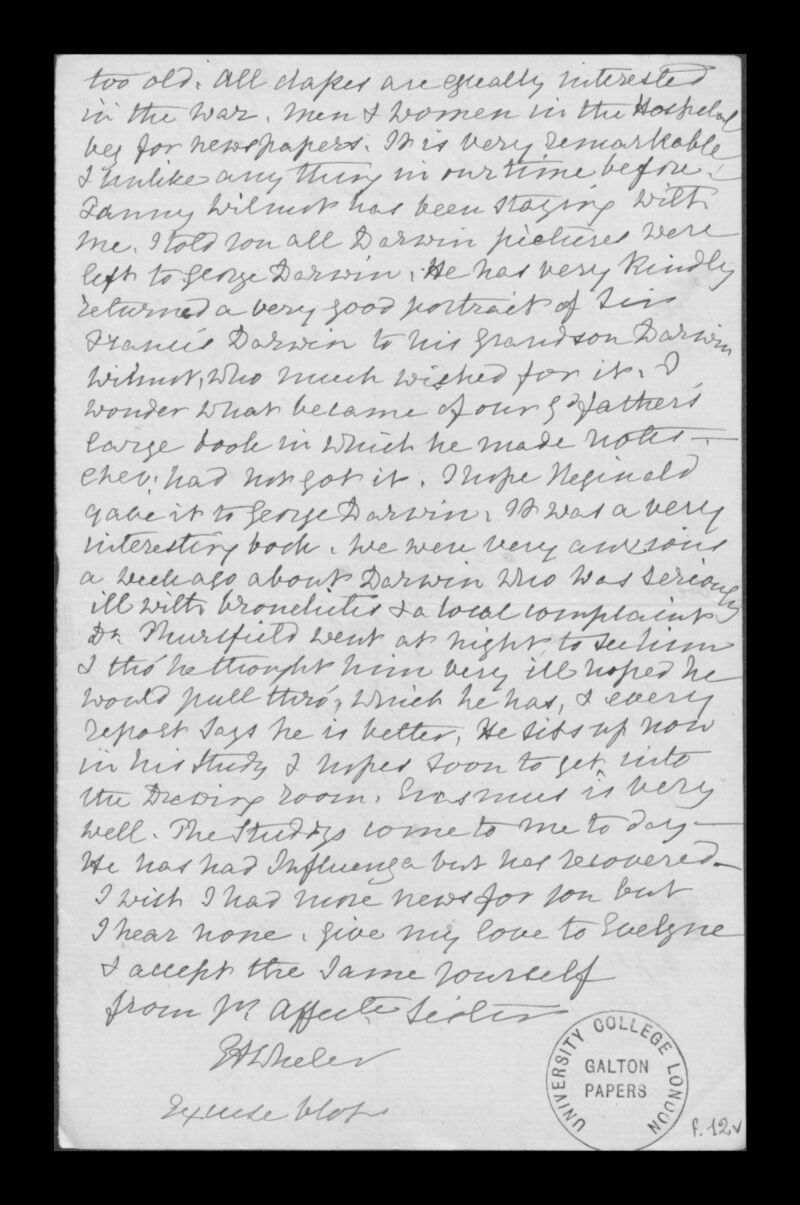 too old. All classes are equally interested
in the War. Men & women in the Hospital
beg for newspapers. It is very remarkable
& unlike any thing in our time before.
Fanny Wilmot has been staying with
me. I told you all Darwin pictures were
left to George Darwin. He has very kindly
returned a very good portrait of Sir
Francis Darwin to his Grandson Darwin
Wilmot, who much wished for it. I
wonder what became of our Gdfathers
large book in which he made notes —
they had not got it. I hope Reginald
gave it to George Darwin. It was a very
interesting book. We were very anxious
a week ago about Darwin who was seriously
ill with bronchitis & a local complaint
Dr. Thursfield went at night to see him
& tho' he thought him very ill hoped he
would pull thro', which he has, & every
report says he is better, He sits up now
in his Study & hopes soon to get into
the Drawing room. Erasmus is very
well. The Studdys come to me to day —
He has had Influenza but has recovered —
I wish I had more news for you but
I hear none. Give my love to Evelyne
& accept the same yourself
from yr. Affecte Sister
EAWheler
Excuse blots
UNIVERSITY COLLEGE LONDON
GALTON
PAPERS
f. 12v